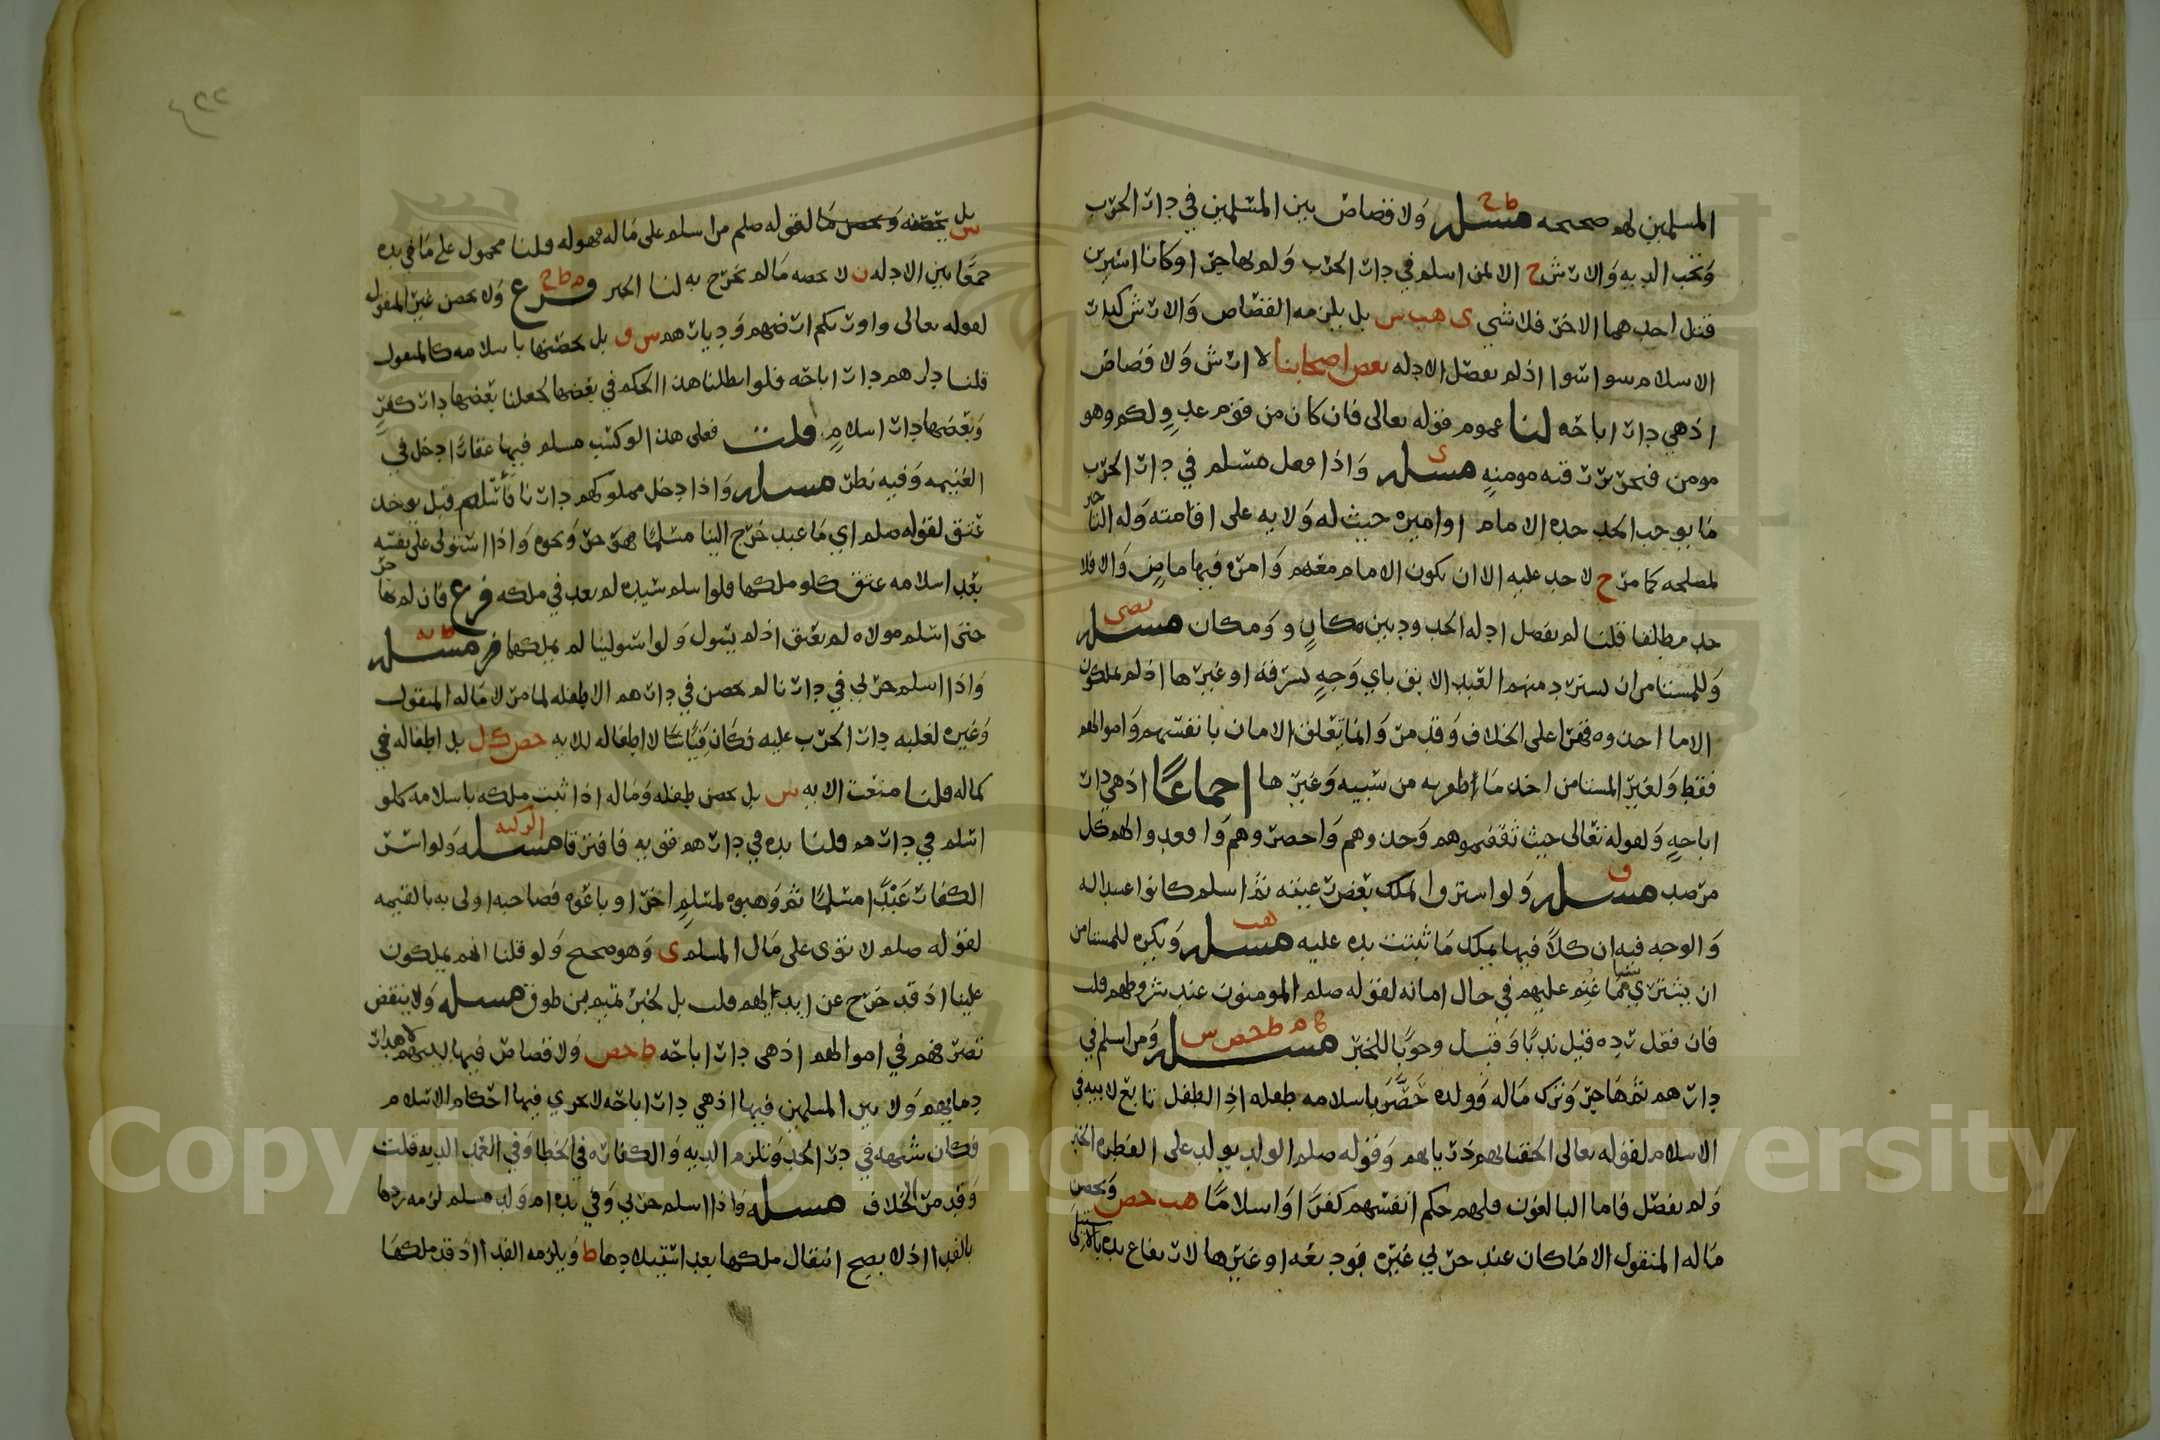 المسلمين لهم صحيحه مسله ط ح ولا قصاص بين المسلمين في دار الحرب
وتجب الديه والارش ح الا لمن اسلم في دار الحرب ولم يهاجر او كانا اسيرين
قتل احدهما الاخر فلا شي ى هب س بل يلزمه القصاص والارش كدار
الاسلام سوا سوا اذ لم يفصل الادله بعض اصحابنا لا ارش ولا قصاص
اذ هي دار اباحه لنا عموم قوله تعالى فان كان من قوم عدو لكم وهو
مومن فتحرير رقبه مومنه مسله ى واذا فعل مسلم في دار الحرب
ما يوجب الحد حده الامام او اميره حيث له ولايه على اقامته وله التاخير
لمصلحه كما مر ح لا حد عليه الا ان يكون الامام معهم وامره فيها ماض والا فلا
حد مطلقا قلنا لم يفصل ادله الحدود بين مكان ومكان مسله
وللمستامن ان يسترد منهم العبد الابق باي وجه لسرقه او غيرها اذ لم يملكوه
الاما اخذوه قهرا على الخلاف وقد مر وانما تعلق الامان بانفسهم واموالهم
فقط ولغير المستامن اخذ ما ظفر به من سبيه وغيرها اجماعا اذ هي دار
اباحه ولقوله تعالى حيث ثقفتموهم وخذوهم واحصروهم واقعدوا لهم كل
مرصد مسله ق ولو استروا لملك بعض عبيته ثم اسلم كانوا عبيدا له
والوجه فيه ان كلا فيها يملك ما ثبتت يده عليه مسله هب ويكره للمستامن
ان يشتري شيئا مما غنم عليهم في حال امانه لقوله صلم المومنون عند شروطهم قلت
فان فعل رده قيل ندبا وقيل وجوبا للخبر مسله ه م ط حص س ومن اسلم في
دارهم ثم هاجر وترك ماله وولده حصن باسلامه طفله اذ الطفل تابع لابيه في
الاسلام لقوله تعالى الحقنا بهم ذرياتهم وقوله صلم الولد يولد على الفطره الخبر
ولم يفصل فاما البالغون فلهم حكم انفسهم كفرا واسلاما هب حص ويحصن
ماله المنقول الا ما كان عند حربي غيره فوديعه او غيرها لارتفاع يده
س بل يحصنه لقوله صلم من اسلم على مال فهو له قلنا محمول على ما في يده
جمعا بين الادله ن لا يحصن ما لم يخرج به لنا الخبر فرع ه ط ح ولا يحصن غير المنقول
لقوله تعالى واورثكم ارضهم وديارهم س ف بل يحصنها باسلامه كالمنقول
قلنا دارهم دار اباحه فلو ابطلنا هذا الحكم في بعضها لجعلنا بعضها دار كفر
وبعضها دار اسلام قلت فعلى هذا لو كسب مسلم فيها عقارا دخل في
الغنيمه وفيه نظر مسله واذا دخل مملوكهم دارنا فاسلم قبل يوخذ
عتق لقوله صلم اي ما عبد خرج الينا مسلما فهو حر ونحوه واذا استولى على نفسه
بعد اسلامه عتق كلو ملكها فلو اسلم سيده لم يعد في ملكه فرع فان لم يهاجر
حتى اسلم مولاه لم يعتق اذ لم يستول ولو استولينا لم يملكها مسله ط يه
واذا اسلم حربي في دارنا لم يحصن في دارهم الا طفله لما مر لا ماله المنقول
وغيره لغلبه دار الحرب عليه فكان فيا لا اطفاله للايه حص ك ل بل اطفاله في
كماله قلنا منعت الايه س بل يحصن طفله وماله اذا ثبت ملكه باسلامه كلو
اسلم في دارهم قلنا يده في دارهم قويه فافترقا مسله ولو استر
الكفار عبدا مسلما ثم وهبوه لمسلم اخر او باعوه فصاحبه اولى به بالقيمه
لقوله صلم لا توى على مال المسلم ى وهو صحيح ولو قلنا انهم يملكون
علينا اذ قد خرج عن ايديهم قلت بل لخبر تميم بن طرفه مسله ولا ينقض
تصرفهم في اموالهم اذ هي دار اباحه ط حص ولا قصاص فيها
دمايهم ولا بين المسلمين فيها اذ هي دار اباحه لا تجري فيها احكام الاسلام
فكان شبهه في در الحد وتلزم الديه والكفاره في الخطا وفي العمد الديه قلت
وقد مر الخلاف مسله واذا اسلم حربي وفي يده ام ولد مسلم لزمه ردها
بالفدا اذ لا يصح انتقال ملكها بعد استيلادها ط ويلزمه الفدا اذ قد ملكها
Copyright © King Saud University